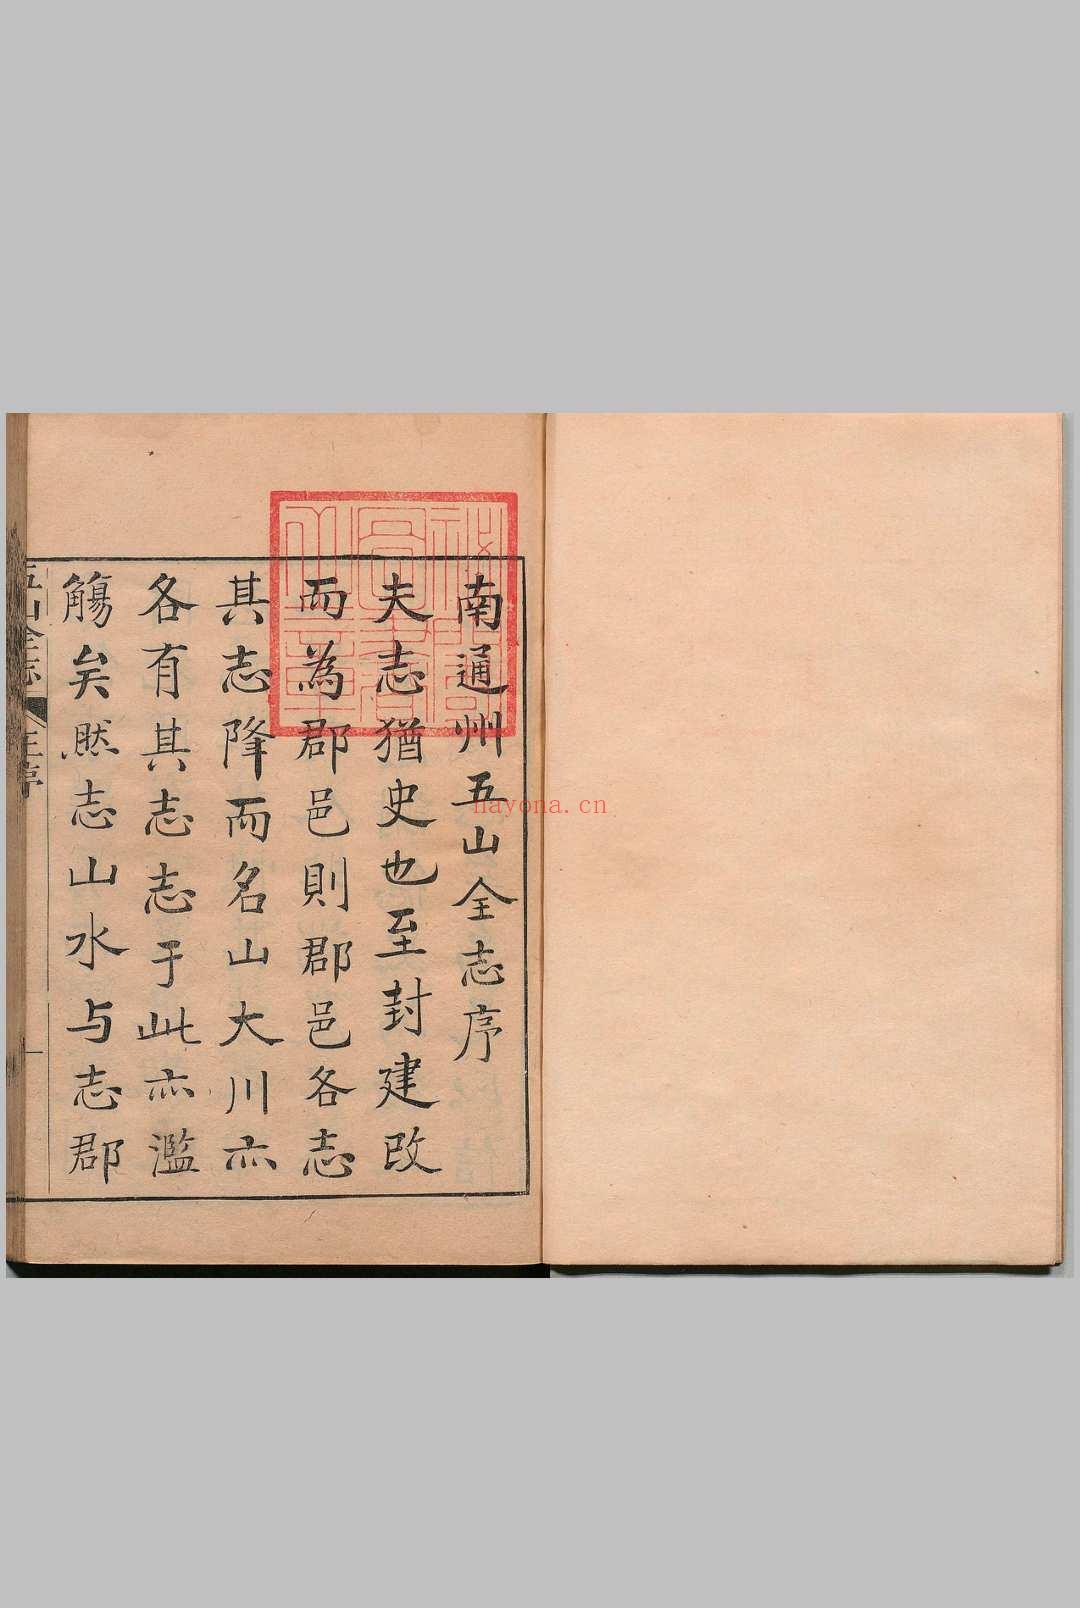 南通州五山全志序
夫志猶史也至封建改
而為郡邑則郡邑各志
其志降而名山大川亦
各有其志志于此亦濫
觴矣然志山水与志郡
五山全志
王序
一
hayona.cn